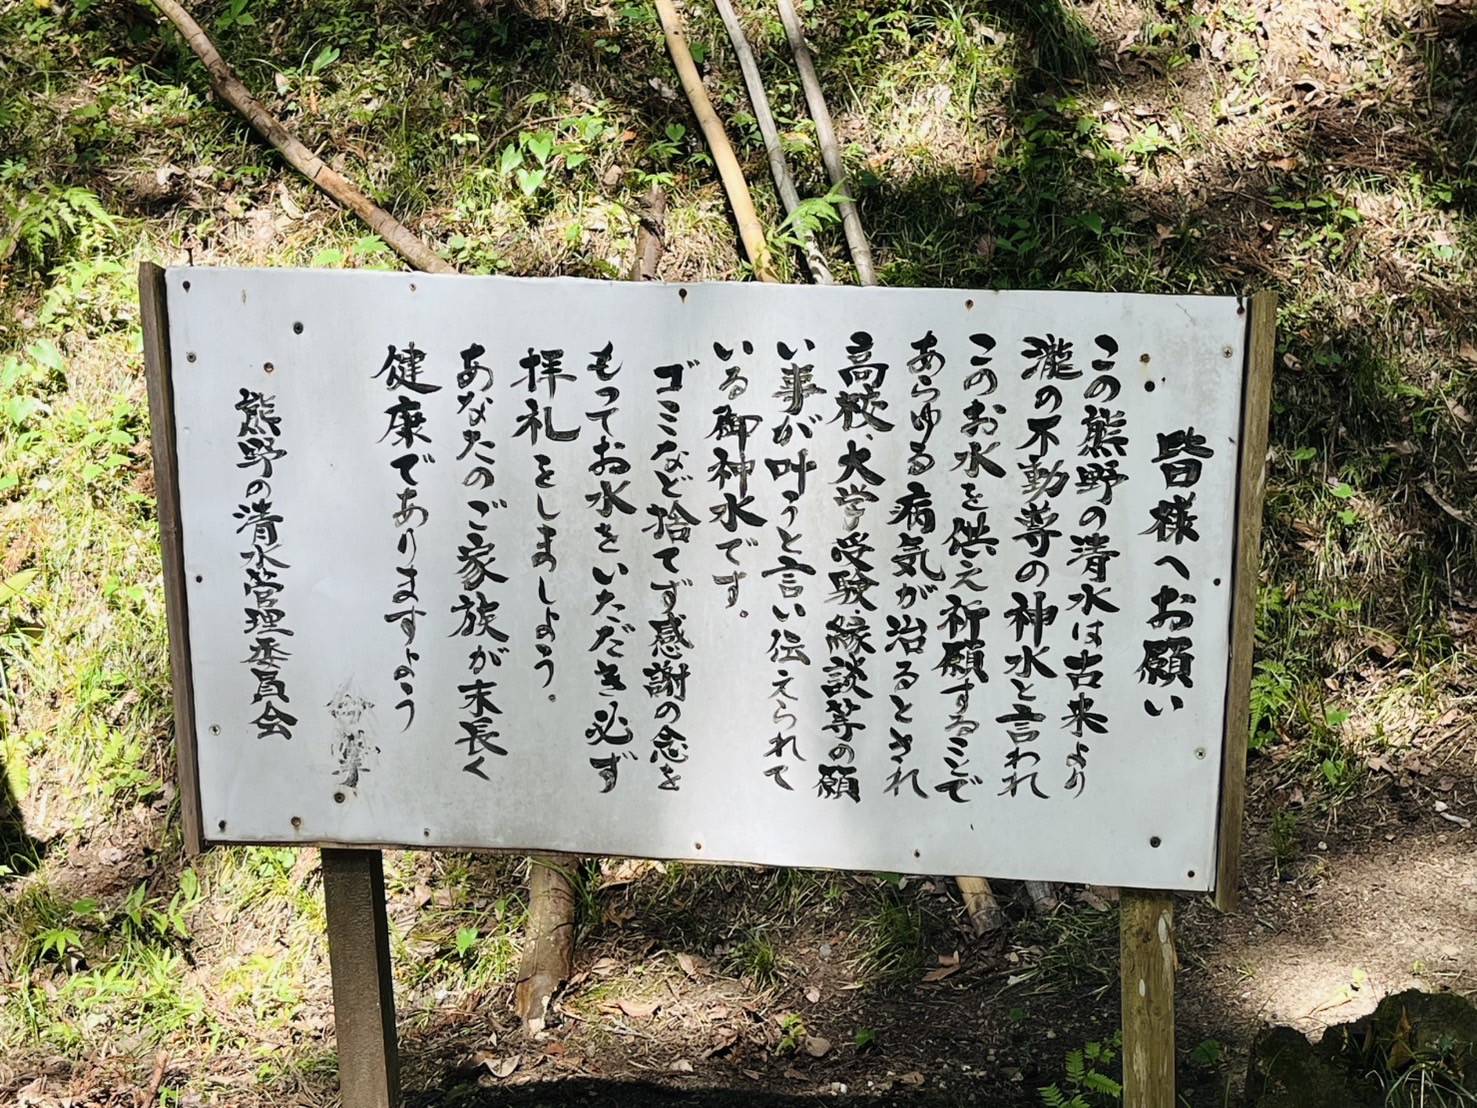 皆様へお願い
この熊野の清水は古来より
瀧の不動尊の神水と言われ
このお水を供え祈願することで、
あらゆる病気が治るとされ
高校、大学受験、縁談等の願
い事が叶うと言い伝えられて
いる御神水です。
ゴミなど捨てず感謝の念を
もってお水をいただき必ず
拝礼をしましょう。
あなたのご家族が末長く
健康でありますよう
熊野の清水管理委員会